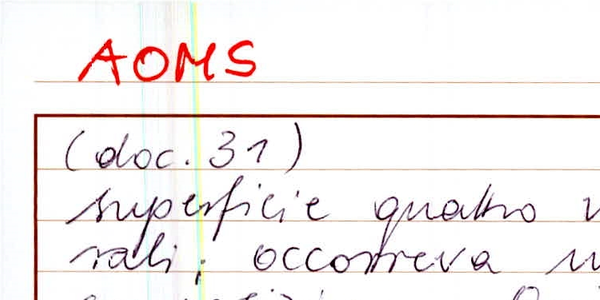 AOMS
(doc. 31)
superficie quattro
rali; occorreva